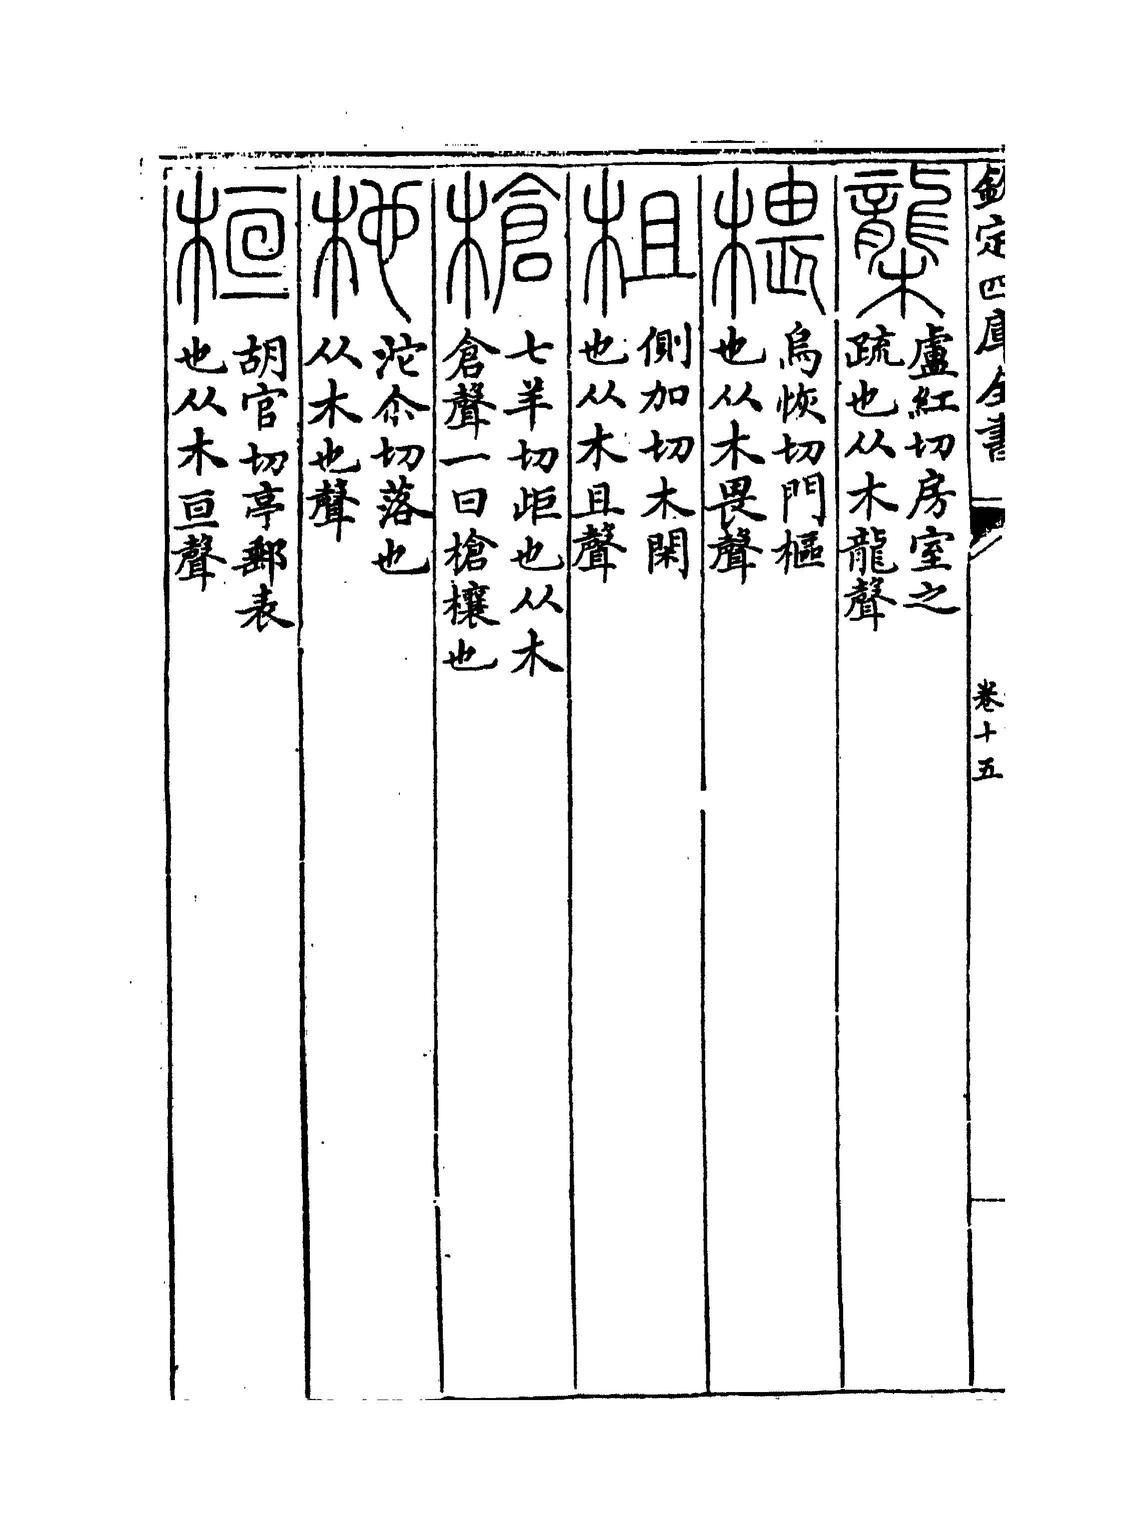 欽定四庫全書
卷十五
櫳
盧紅切房室之
疏也从木龍聲
椳
烏恢切門樞
也从木畏聲
柤
側加切木閑
也从木且聲
槍
七羊切歫也从木
倉聲一曰槍欀也
杝
沱尒切落也
从木也聲
桓
胡官切亭郵表
也从木亘聲